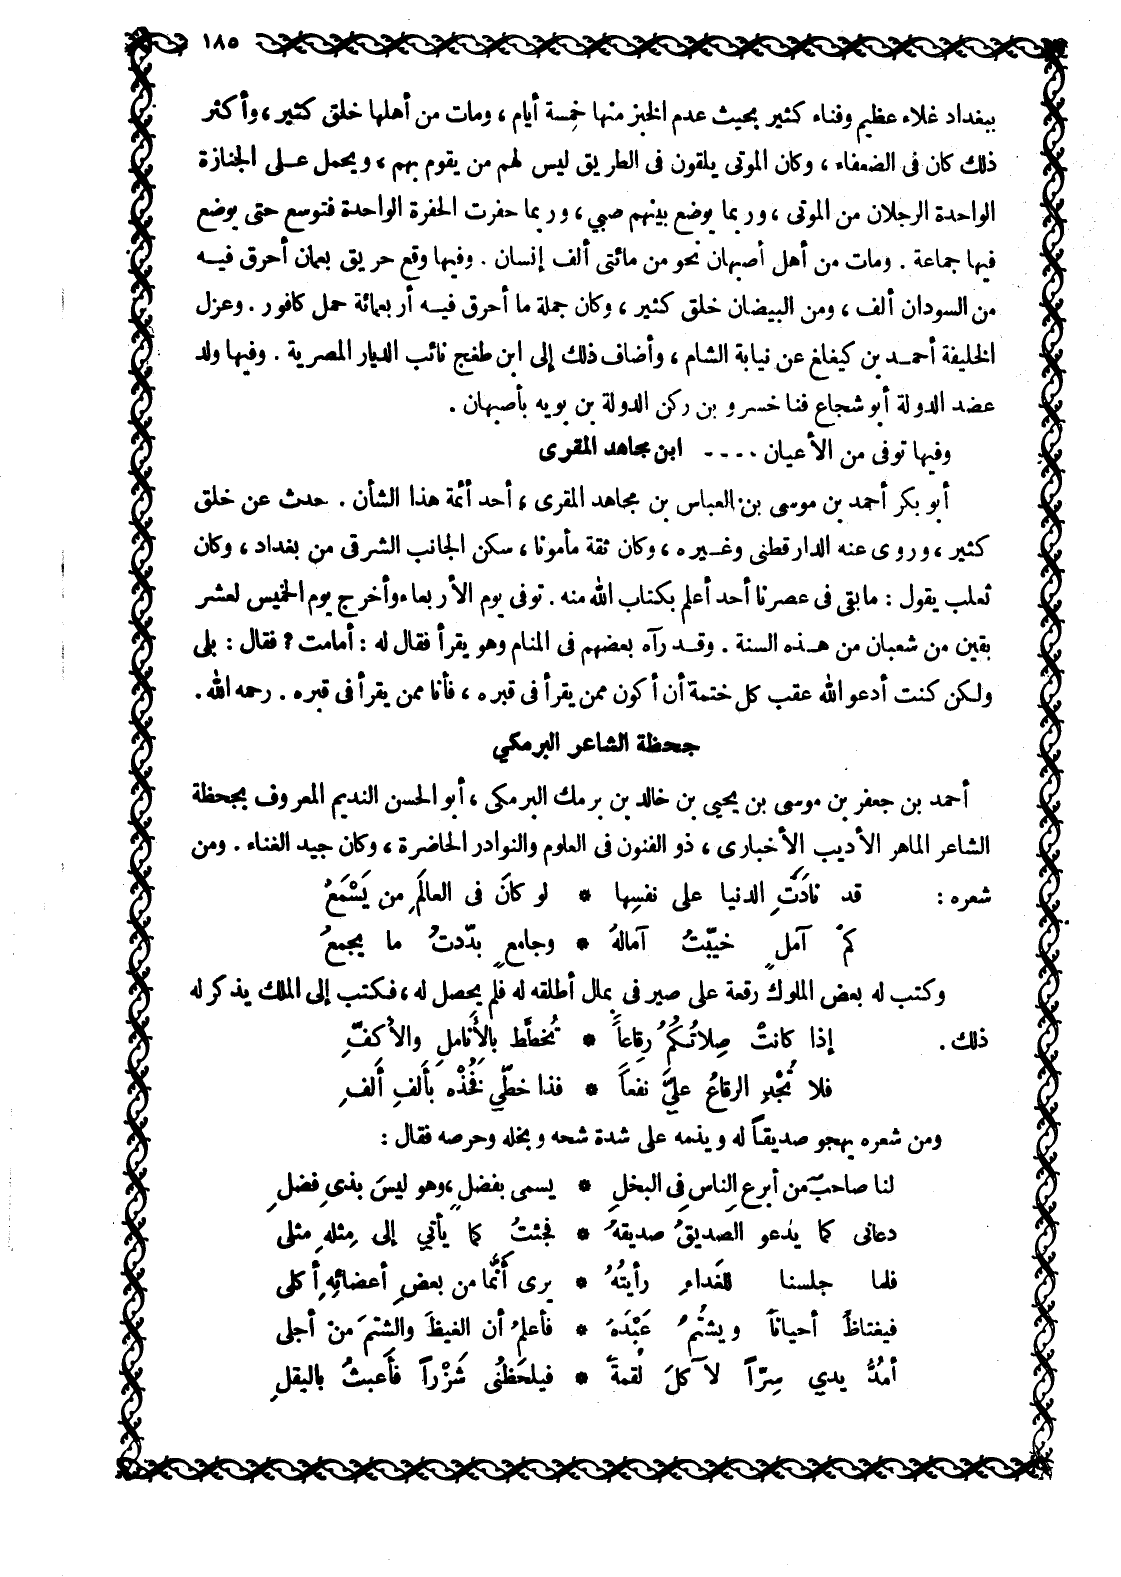 ١٨٥
ببغداد غلاء عظيم وفناء كثير بحيث عدم الخبز منها خمسة أيام ، ومات من أهلها خلق كثير ، وأكثر
ذلك كان فى الضعفاء ، وكان الموتى يلقون فى الطريق ليس لهم من يقوم بهم ، ويحمل على الجنازة
الواحدة الرجلان من الموتى ، وربما يوضع بينهم صبي ، وربما حفرت الحفرة الواحدة فتوسع حتى يوضع
فيها جماعة . ومات من أهل أصبهان نحو من مائتى ألف إنسان . وفيها وقع حريق بعمان أحرق فيه
من السودان ألف ، ومن البيضان خلق كثير ، وكان جملة ما أحرق فيه أربعمائة حمل كافور . وعزل
الخليفة أحمد بن كيغلغ عن نيابة الشام ، وأضاف ذلك إلى ابن طغج نائب الديار المصرية . وفيها ولد
عضد الدولة أبو شجاع فنا خسرو بن ركن الدولة بن بويه بأصبهان .
وفيها توفى من الأعيان ---- ابن مجاهد المقرى
أبو بكر أحمد بن موسى بن العباس بن مجاهد المقرى ، أحد أئمة هذا الشأن . حدث عن خلق
كثير ، وروى عنه الدارقطنى وغيره ، وكان ثقة مأمونا ، سكن الجانب الشرقى من بغداد ، وكان
ثعلب يقول : ما بقى فى عصرنا أحد أعلم بكتاب الله منه . توفى يوم الأربعاء وأخرج يوم الخميس لعشر
بقين من شعبان من هذه السنة . وقد رآه بعضهم فى المنام وهو يقرأ فقال له : أمامت ؟ فقال : بلى
ولكن كنت أدعو الله عقب كل ختمة أن أكون ممن يقرأ فى قبره ، فأنا ممن يقرأ فى قبره . رحمه الله .
جحظة الشاعر البرمكي
أحمد بن جعفر بن موسى بن يحيى بن خالد بن برمك البرمكى ، أبو الحسن النديم المعروف بجحظة
الشاعر الماهر الأديب الأخبارى ، ذو الفنون فى العلوم والنوادر الحاضرة ، وكان جيد الغناء . ومن
شعره : قد نادَتِ الدنيا على نفسِها * لو كانَ فى العالَمِ من يَسْمَعُ
كمْ آملٍ خيبّتُ آمالهُ * وجامعٍ بدّدتُ ما يجمعُ
وكتب له بعض الملوك رقعة على صيرفى بمال أطلقه له فلم يحصل له ، فكتب إلى الملك يذكر له
ذلك . إذا كانتْ صِلاتُكمُ رِقاعاً * تُخطَّط بالأناملِ والأكفّ
فلا تُجْدِ الرقاعُ عليَّ نفعاً * فذا خطّي فخُذْه بألفِ ألفِ
ومن شعره يهجو صديقاً له ويذمه على شدة شحه وبخله وحرصه فقال :
لنا صاحبٌ من أبرعِ الناسِ فى البخلِ * يسمى بفضلٍ ، وهو ليسَ بذى فضلِ
دعانى كما يدعو الصديقُ صديقهُ * فجئتُ كما يأتي إلى مِثلهِ مثلى
فلما جلسنا للغَداءِ رأيتُهُ * يرى أنَّما من بعضِ أعضائهِ أكلى
فيغتاظُ أحياناً ويشتُمُ عَبْدَهُ * فأعلمُ أن الغيظَ والشتمَ منْ أجلى
أمُدُّ يدي سِرّاً لآكلَ لُقمةً * فيلحَظُنى شَزْراً فأعبثُ بالبقلِ